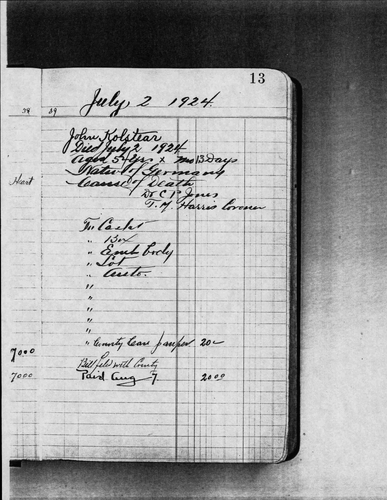 13
39 39
July, 2 1924
John Kolstear
Died July 2 1924
Aged 54 yrs x mo 13 Days
Native of Germany
Heart
Cause of Death
Dr C P Jones
T. M. Harris Coroner
To Casket
" Box
" Emb body
" Lot
" Auto.
"
"
"
"
" County Case pauper 20
7000
Bill filed with County
7000 Paid Aug 7. 2000